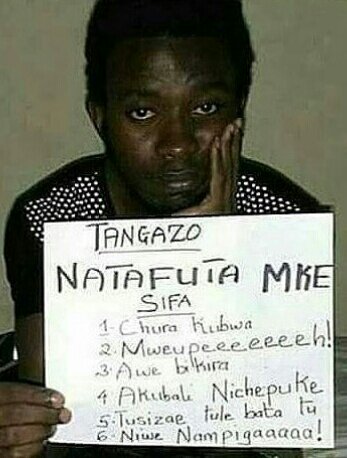 TANGAZO
NATAFUTA MKE
SIFA
1. Chura Kubwa
2. Mweupeeeeeeeh!
3. Awe bikira
4 Akubali Nichepuke
5. Tusizae tule bata tu
6. Niwe Nampigaaaaa!